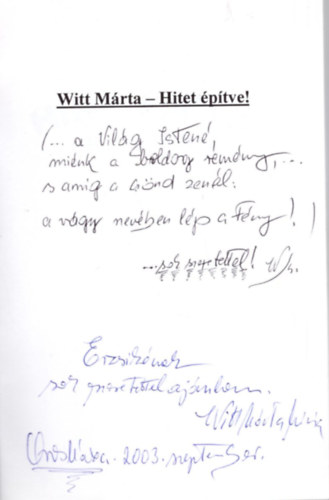 Witt Márta – Hitet építve!
(... a Világ Istené,
miénk a boldog remény,...
s amíg a csönd zenél:
a vágy nevében lép a Fény!)
...sok szeretettel! W.M.
Erzsikének
sok szeretettel ajánlom.
Witt Márta Mária
Orosháza. 2003. szeptember.